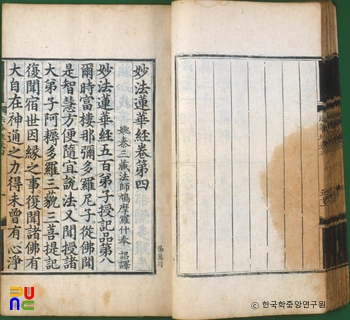 妙法蓮華經卷第四
姚秦三藏法師鳩摩羅什奉 詔譯
妙法蓮華經五百弟子授記品第八
爾時富樓那彌多羅尼子從佛聞
是智慧方便隨宜說法又聞授諸
大弟子阿耨多羅三藐三菩提記
復聞宿世因緣之事復聞諸佛有
大自在神通之力得未曾有心淨
RUNC
ⓒ 한국학중앙연구원